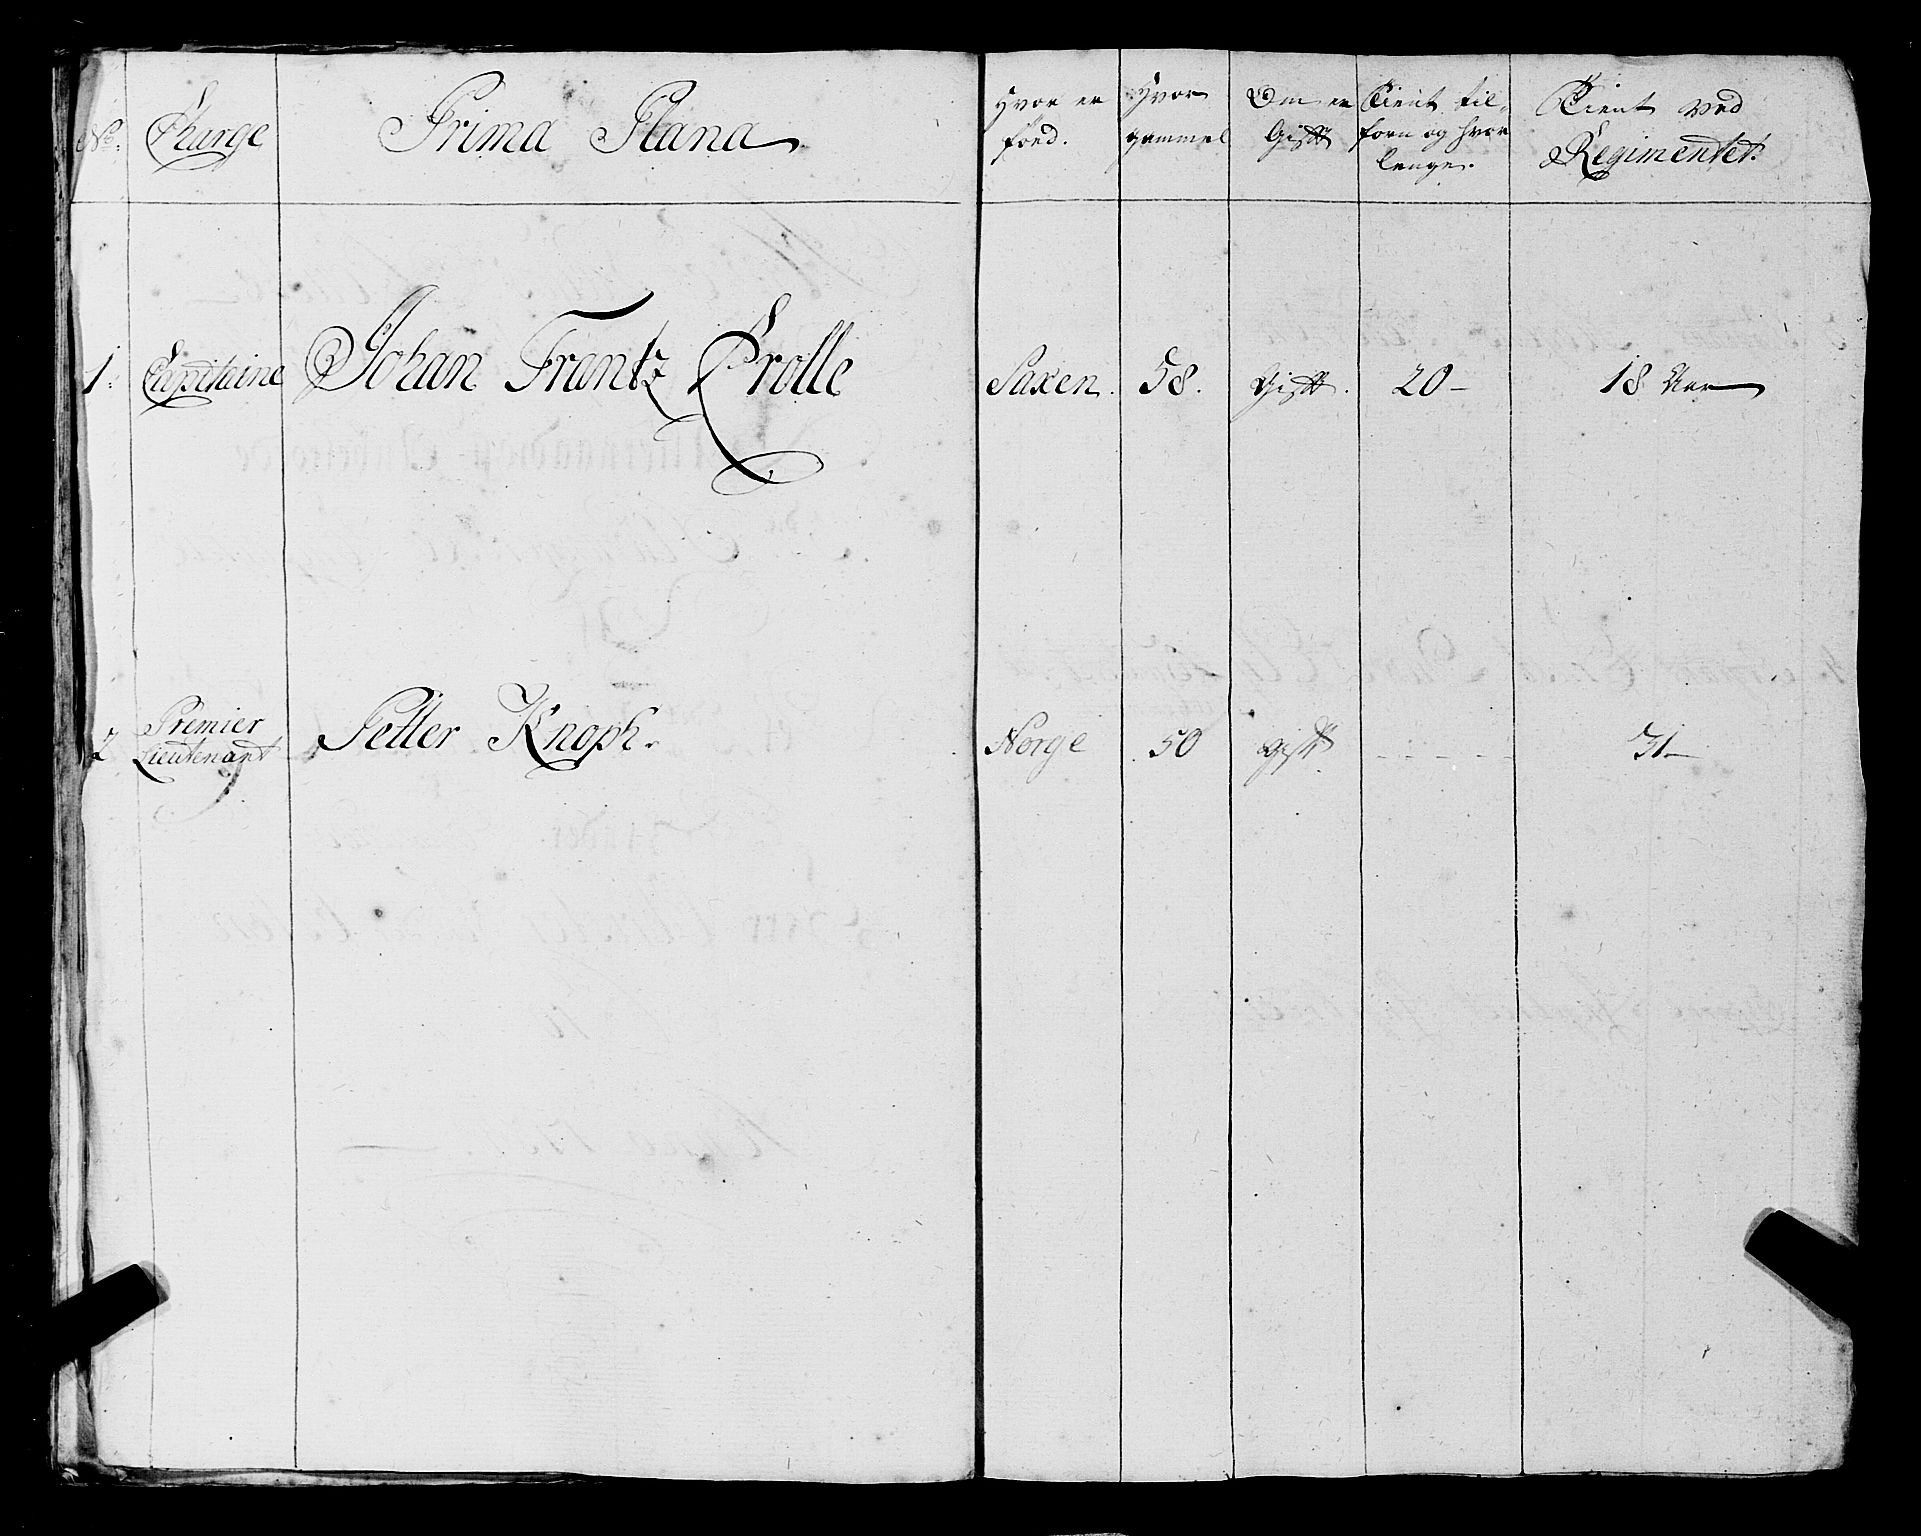 No. Charge Prima Plana Hvor er Hvor Om er Tient til- Tient ved
föed. gammel Gift forn og hvor Regimentet.
lenge.
1. Capitaine Johan Frantz Crolle Saxen. 58. Gift. 20- 18 Aar
Premier
2 Lieutenant Petter Knoph. Norge 50 gift 31-